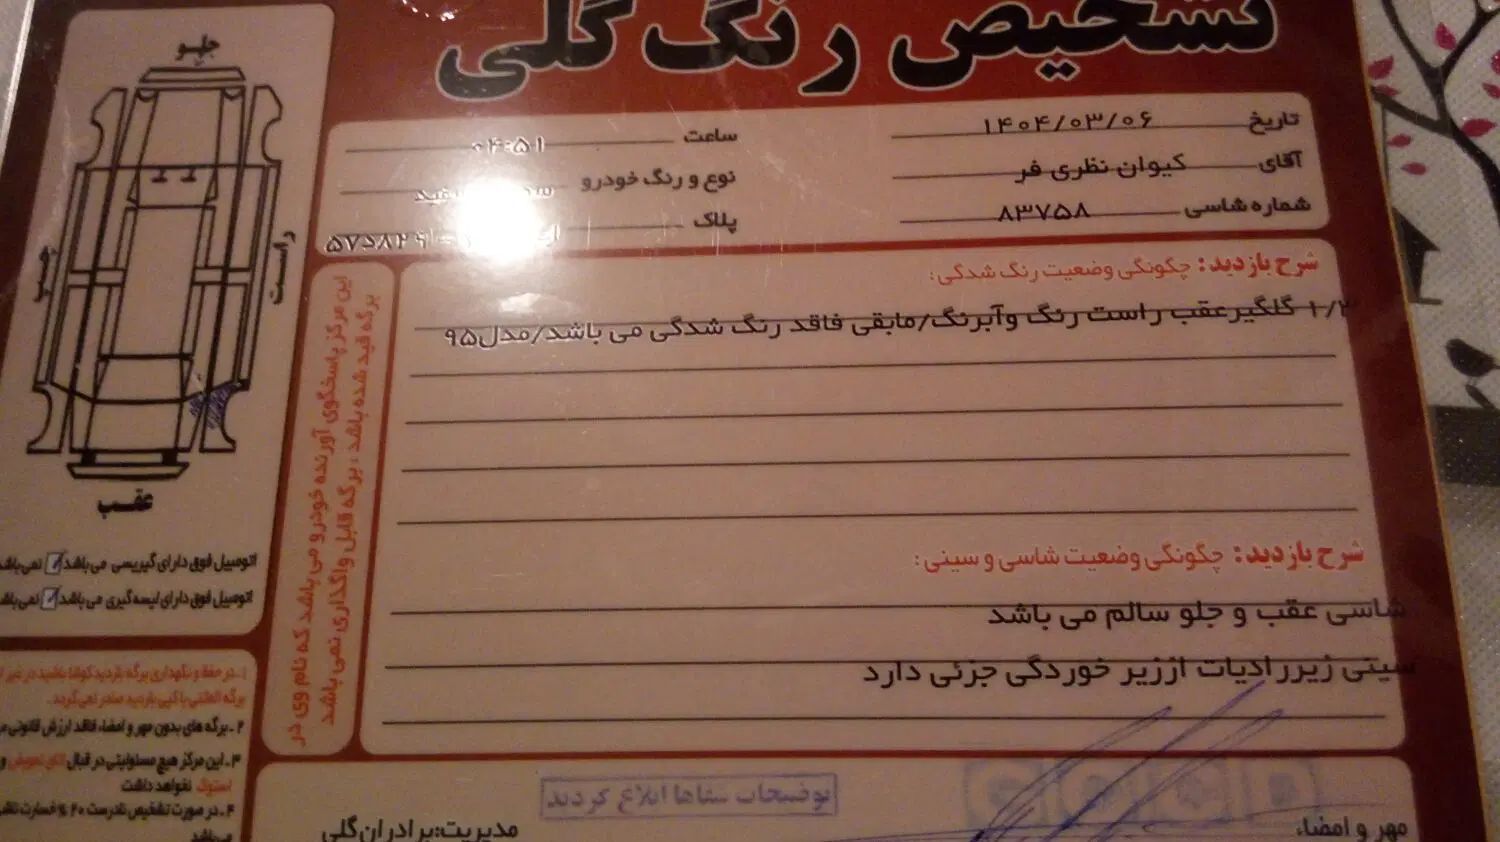 تشخیص رنگ گلی
تاریخ ۱۴۰۴/۰۳/۰۶ ساعت ۰۴:۵۱
آقای کیوان نظری فر نوع و رنگ خودرو
شماره شاسی ۸۳۷۵۸ پلاک
شرح بازدید: چگونگی وضعیت رنگ شدگی:
۱/۲ گلگیرعقب راست رنگ وآبرنگ/مابقی فاقد رنگ شدگی می باشد/مدل۹۵
شرح بازدید: چگونگی وضعیت شاسی و سینی:
شاسی عقب و جلو سالم می باشد
سینی زیررادیات اززیر خوردگی جزئی دارد
توضیحات شفاها ابلاغ گردید
مهر و امضاء
مدیریت:برادران گلی
این مرکز پاسخگوی آورنده خودرو می باشد که نام وی در
برگه قید شده باشد ، برگه قابل واگذاری نمی باشد
جلو
راست
چپ
عقب
اتومبیل فوق دارای گیریسی می باشد نمی‌باشد
اتومبیل فوق دارای لیسه گیری می باشد نمی‌باشد
۱ـ در حفظ و نگهداری برگه بازدید کوشا باشید در غیر
برگه المثنی یا کپی بازدید صادر نمی‌گردد.
۲ـ برگه های بدون مهر و امضاء، فاقد ارزش قانونی
۳ـ این مرکز هیچ مسئولیتی در قبال اتاق تعویض و
استوک نخواهد داشت
۴ـ در صورت تشخیص نادرست ۲۰ % خسارت
می‌باشد